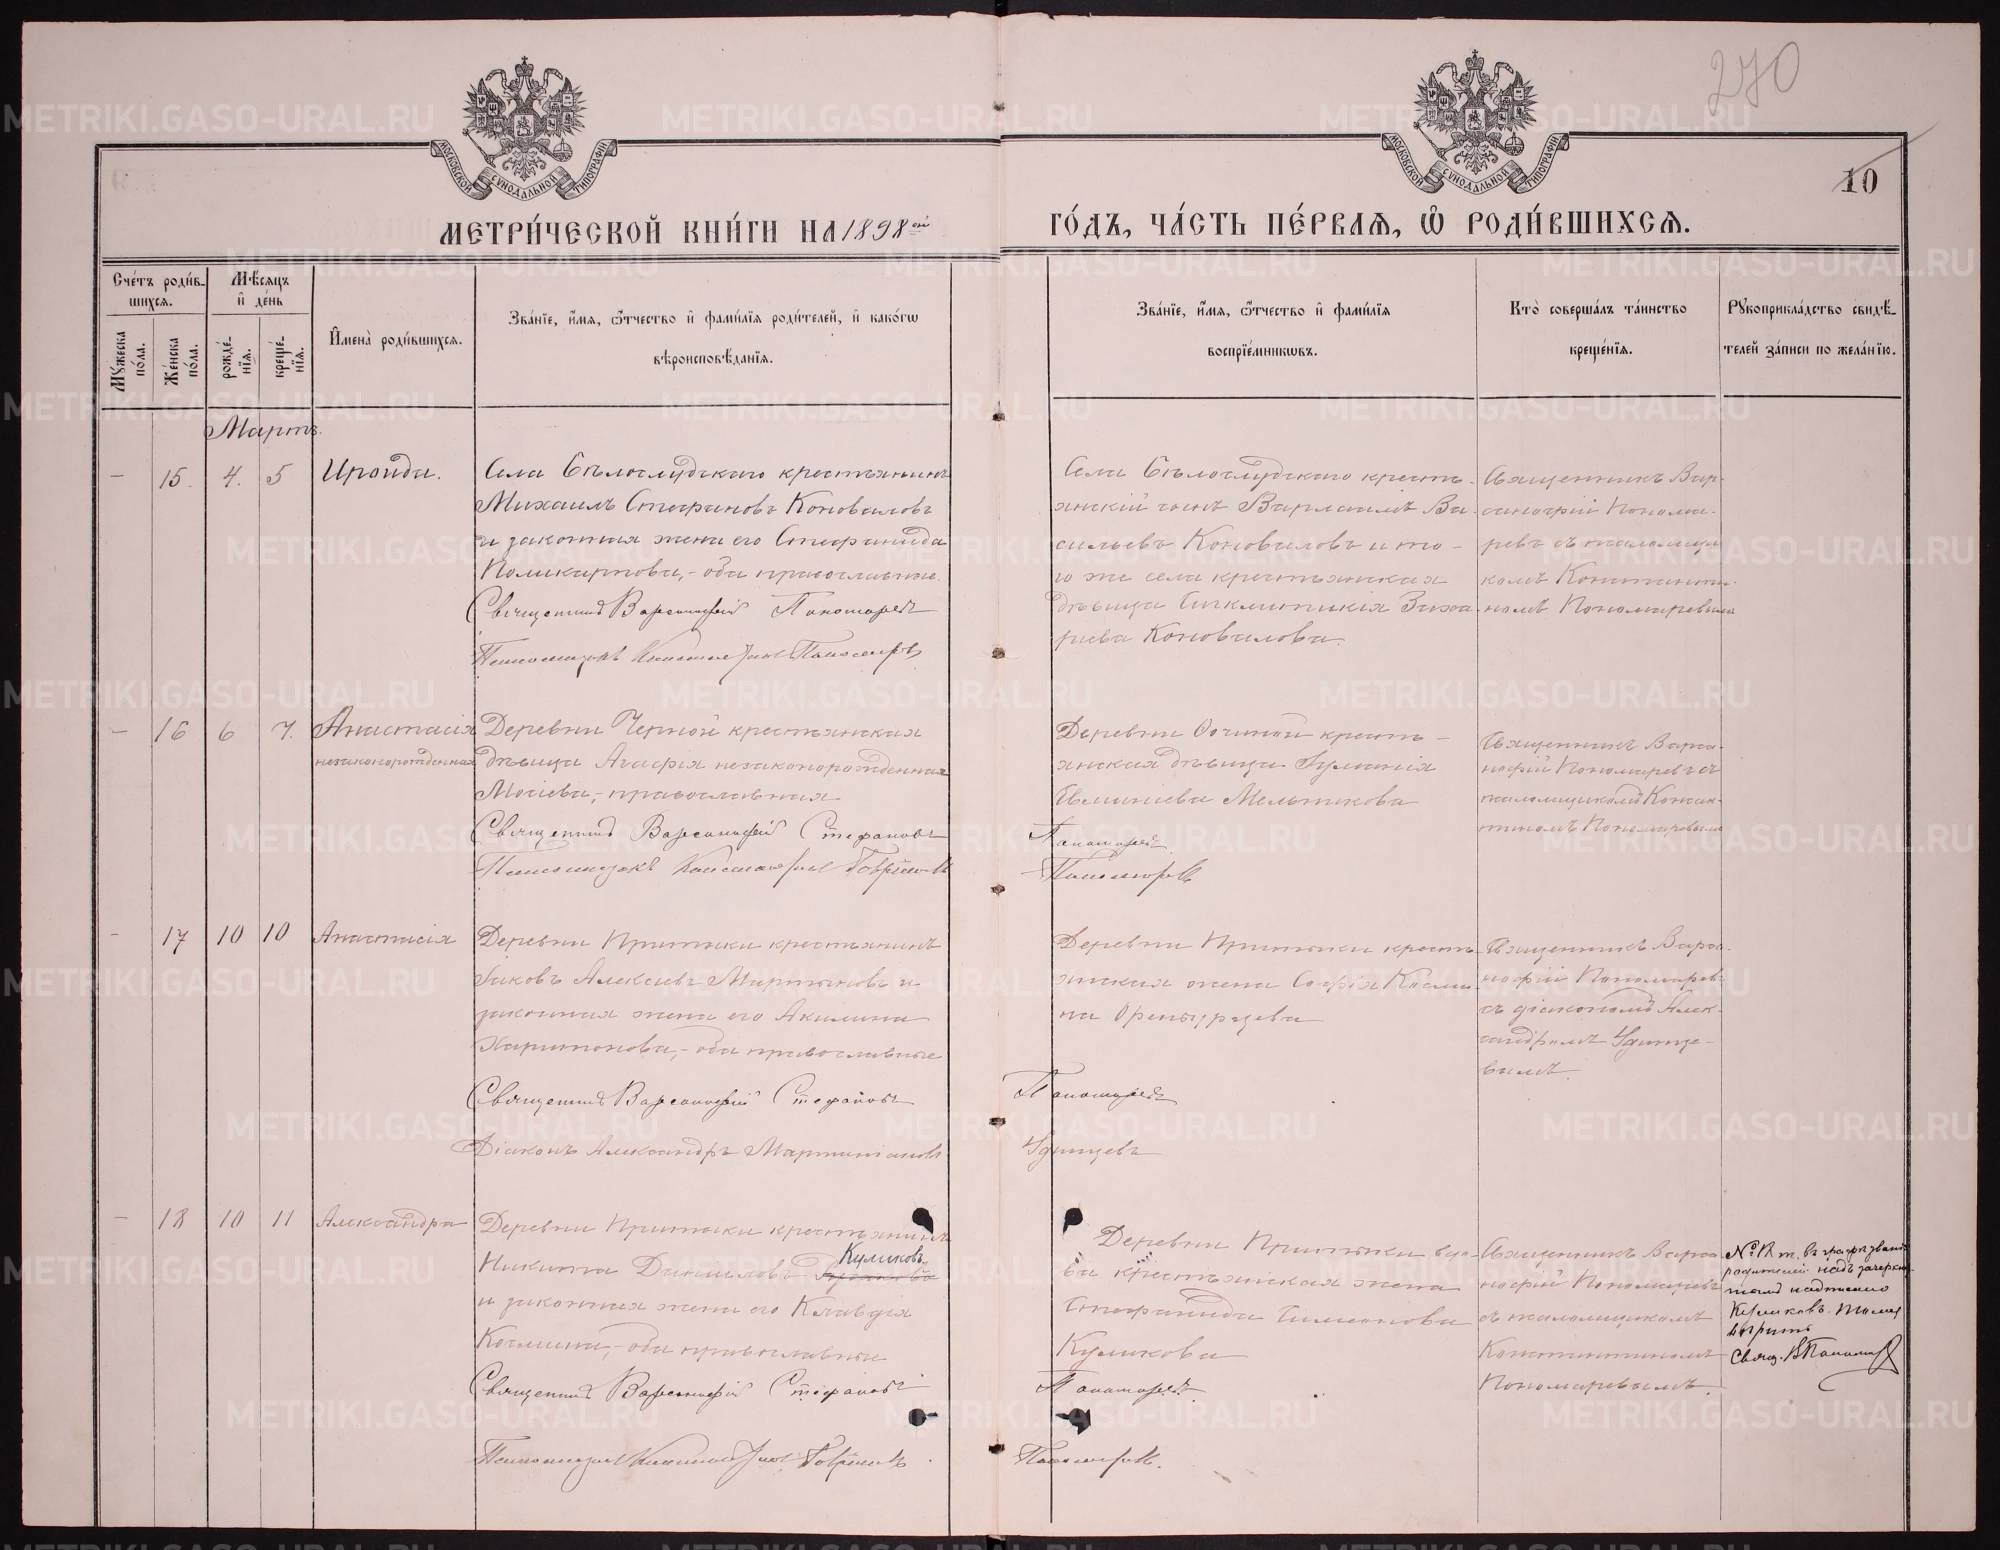 270
10
МОСКОВСКОЙ СѴНОДАЛЬНОЙ ТИПОГРАФІИ
МОСКОВСКОЙ СѴНОДАЛЬНОЙ ТИПОГРАФІИ
МЕТРИ́ЧЕСКОЙ КНИ́ГИ НА 1898 ой
ГО́ДЪ, ЧА́СТЬ ПЕ́РВАѦ, Ѡ҆ РОДИ́ВШИХСѦ.
Сче́тъ роди́в-
шихсѧ.
Мѣ́сѧцъ
и҆ де́нь
Мꙋ́жеска по́ла.
Же́нска по́ла.
рожде́-нїѧ.
креще́-нїѧ.
И҆мена̀ роди́вшихсѧ.
Зва́нїе, и҆́мѧ, ѻ҆́тчество и҆ фами́лїѧ роди́телей, и҆ како́гѡ
вѣроисповѣ́данїѧ.
Зва́нїе, и҆́мѧ, ѻ҆́тчество и҆ фами́лїѧ
воспрїе́мникѡвъ.
Кто̀ соверша́лъ та́инство
креще́нїѧ.
Рꙋкоприкла́дство свидѣ́-
телей за́писи по жела́нїю.
Мартъ.
– 15. 4. 5 Ираида.
Села Бѣлослудскаго крестьянинъ
Михаилъ Стефановъ Коноваловъ
и законная жена его Стефанида
Поликарпова,- оба православные.
Священникъ Варсонофій Пономаревъ
Псаломщикъ Константинъ Пономаревъ
Села Бѣлослудскаго кресть-
янскій сынъ Варлаамъ Ва-
сильевъ Коноваловъ и то-
го же села крестьянская
дѣвица Захա-
рiева Коновалова.
Священникъ Вар-
санофій Понома-
ревъ съ псаломщи-
комъ Константи-
номъ Пономаревымъ
– 16 6 7. Анастасія
незаконорожденная
Деревни Черной крестьянская
дѣвица Агафія незаконорожденная
Моѵсіева,- православная
Священникъ Варсонофій Стефановъ
Псаломщикъ Константинъ Гавріиловъ
Деревни кресть-
янская дѣвица Іуліанія
Мельникова
Пономаревъ
Пономаревъ
Священникъ Варса-
нофій Пономаревъ съ
псаломщикомъ Констан-
тиномъ Пономаревымъ
– 17 10 10 Анастасія
Деревни Притыки крестьянинъ
Іаковъ Алексіевъ Мартыновъ и
законная жена его Акилина
Харитонова,- оба православные
Священникъ Варсонофій Стефановъ
Діаконъ Александръ Мартиніановъ
Деревни Притыки кресть-
янская жена Софія Косми-
на Оренбурцева
Пономаревъ
Удинцевъ
Священникъ Варса-
нофій Пономаревъ
съ діакономъ Алек-
сандромъ Удинце-
вымъ.
– 18 10 11 Александра
Деревни Притыки крестьянинъ
Куликовъ
Никита Даниловъ
и законная жена его Клавдія
Космина,- оба православные
Священникъ Варсонофій Стефановъ
Псаломщикъ Константинъ Гавріиловъ
Деревни Притыки вдо-
ва крестьянская жена
Стефанида Симеонова
Куликова
Пономаревъ
Пономаревъ.
Священникъ Варса-
нофій Пономаревъ
съ псаломщикомъ
Константиномъ
Пономаревымъ.
№ 18 ж. въ графѣ званіе
родителей надъ зачеркну-
тымъ надписано
Куликовъ. тому
вѣрить
Свящ. В Пономарев